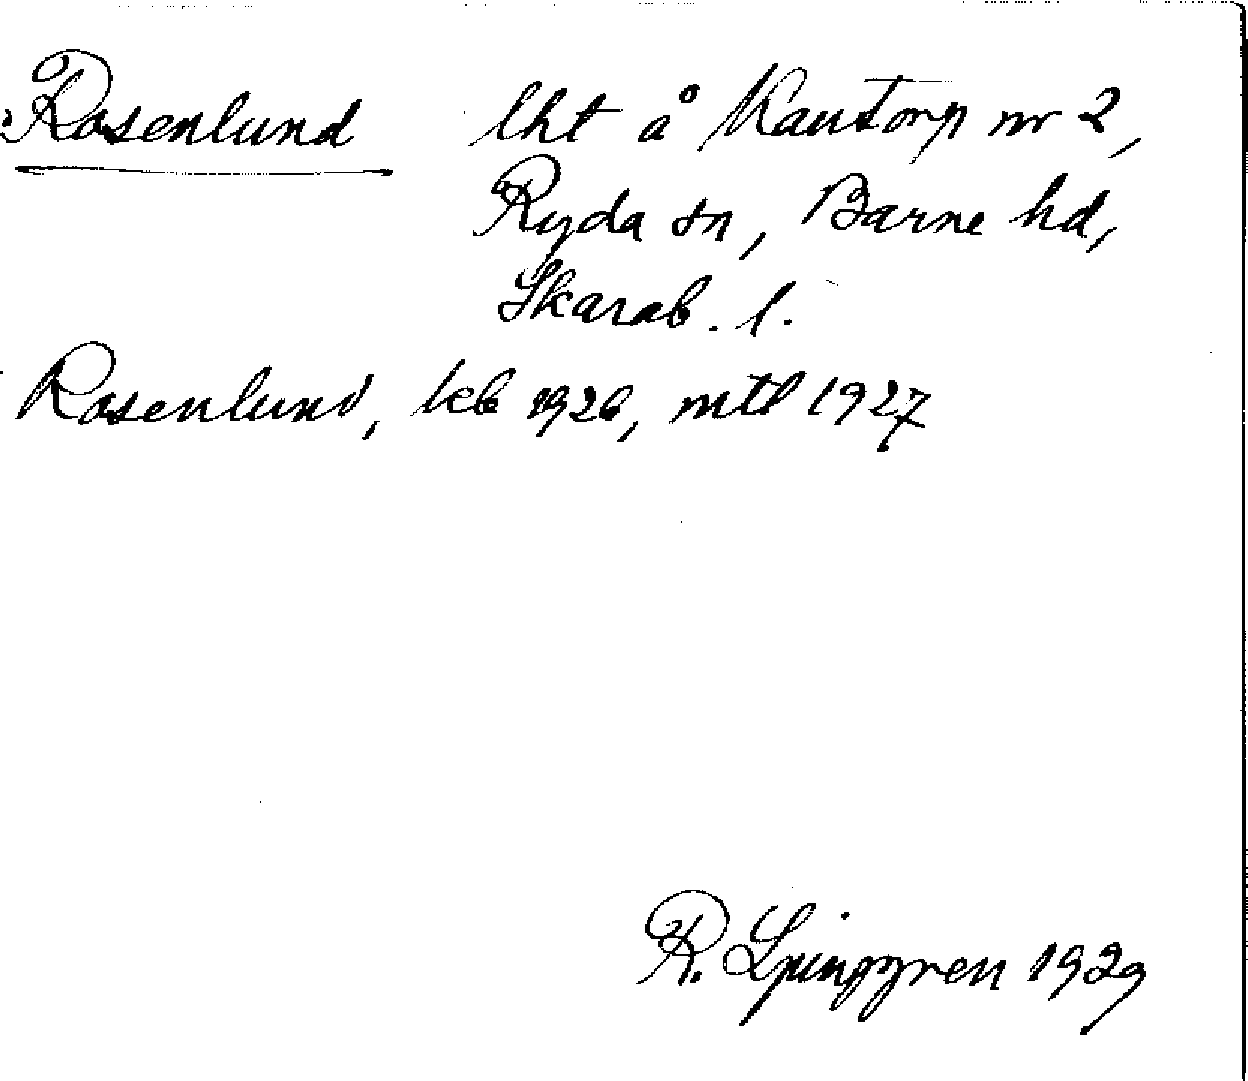 Rosenlund lht å Kautorp nr 2,
Ryda sn, Barne hd,
Skarab. l.
Rosenlund, kb 1926, mtl 1927
R. Ljunggren 1929